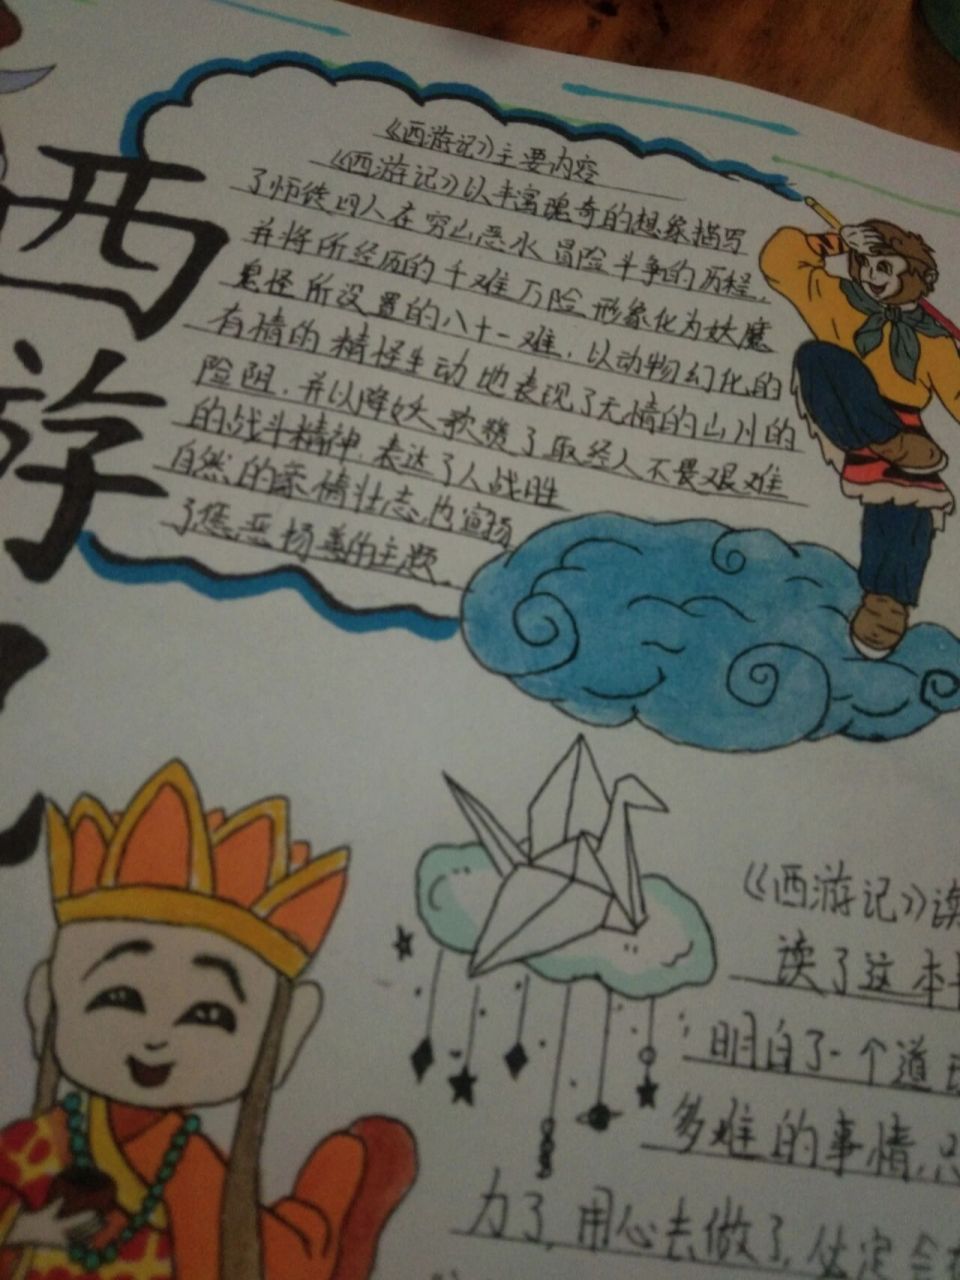 西游记
《西游记》主要内容
《西游记》以丰富瑰奇的想象描写
了师徒四人在穷山恶水冒险斗争的历程,
并将所经历的千难万险形象化为妖魔
鬼怪所设置的八十一难,以动物幻化的
有情的精怪生动地表现了无情的山川的
险阻,并以降妖歌赞了取经人不畏艰难
的战斗精神,表达了人战胜
自然的豪情壮志,内宣扬
了惩恶扬善的主题.
《西游记》读
读了这本
明白了一个道
多难的事情,只
力了,用心去做了,